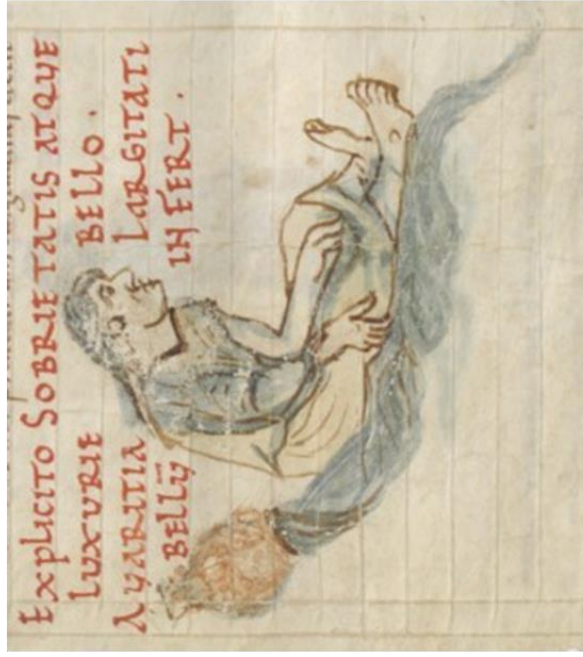 EXPLICITO SOBRIETATIS ATQUE
LUXVRIE BELLO.
AVARITIA LARGITATI
BELLŪ INFERT.